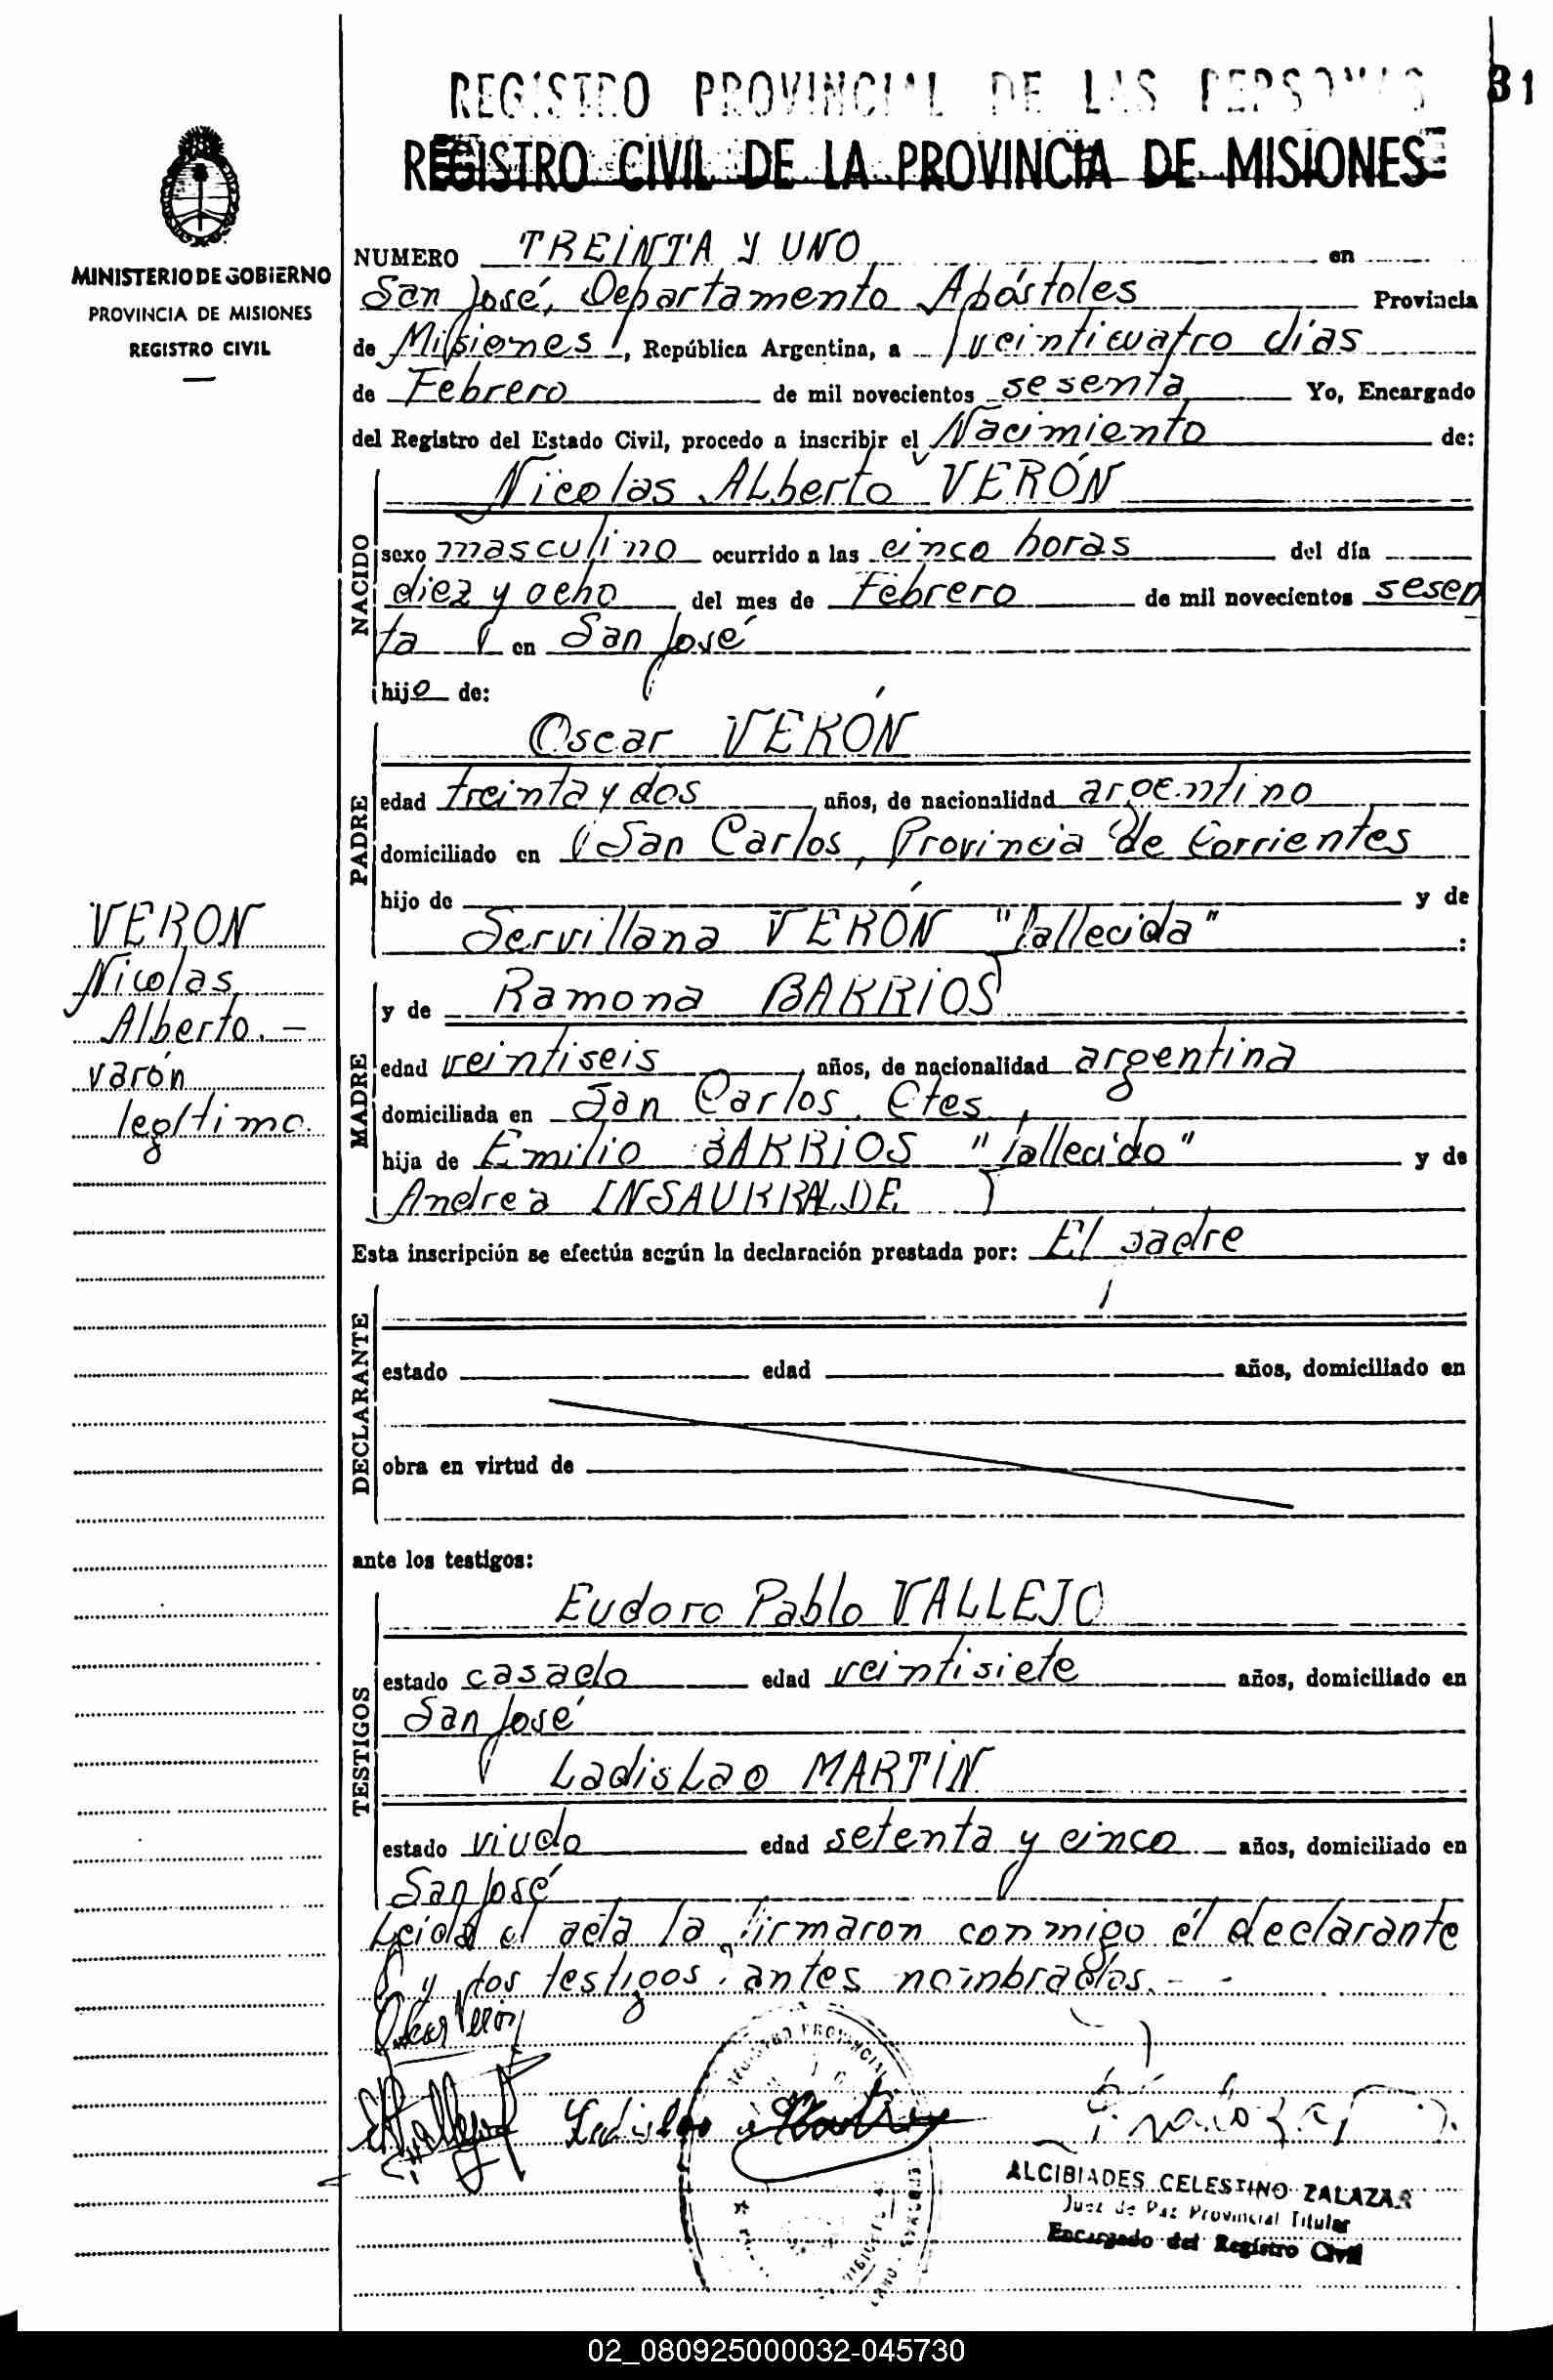 REGISTRO PROVINCIAL DE LAS PERSONAS
31
REGISTRO CIVIL DE LA PROVINCIA DE MISIONES
MINISTERIO DE GOBIERNO
PROVINCIA DE MISIONES
REGISTRO CIVIL
NUMERO TREINTA Y UNO en
San José, Departamento Apóstoles Provincia
de Misiones, República Argentina, a veinticuatro días
de Febrero de mil novecientos sesenta Yo, Encargado
del Registro del Estado Civil, procedo a inscribir el Nacimiento de:
NACIDO
Nicolas Alberto VERÓN
sexo masculino ocurrido a las cinco horas del día
diez y ocho del mes de Febrero de mil novecientos sesen
ta en San José
hijo de:
PADRE
Oscar VERÓN
edad treinta y dos años, de nacionalidad argentino
domiciliado en San Carlos, Provincia de Corrientes
hijo de y de
Servillana VERÓN "fallecida" :
MADRE
y de Ramona BARRIOS
edad veintiseis años, de nacionalidad argentina
domiciliada en San Carlos, Ctes,
hija de Emilio BARRIOS "fallecido" y de
Andrea INSAURRALDE
VERON
Nicolas
Alberto.-
varón
legítimo.
Esta inscripción se efectúa según la declaración prestada por: El padre
DECLARANTE
estado edad años, domiciliado en
obra en virtud de
ante los testigos:
TESTIGOS
Eudoro Pablo VALLEJO
estado casado edad veintisiete años, domiciliado en
San José
Ladislao MARTIN
estado viudo edad setenta y cinco años, domiciliado en
San José
Leida el acta la firmaron conmigo el declarante
y los testigos antes nombrados.- -
Oscar Verón
Ladislao Martin
REGISTRO PROVINCIAL
ALCIBIADES CELESTINO ZALAZAR
Juez de Paz Provincial Titular
Encargado del Registro Civil
02_080925000032-045730